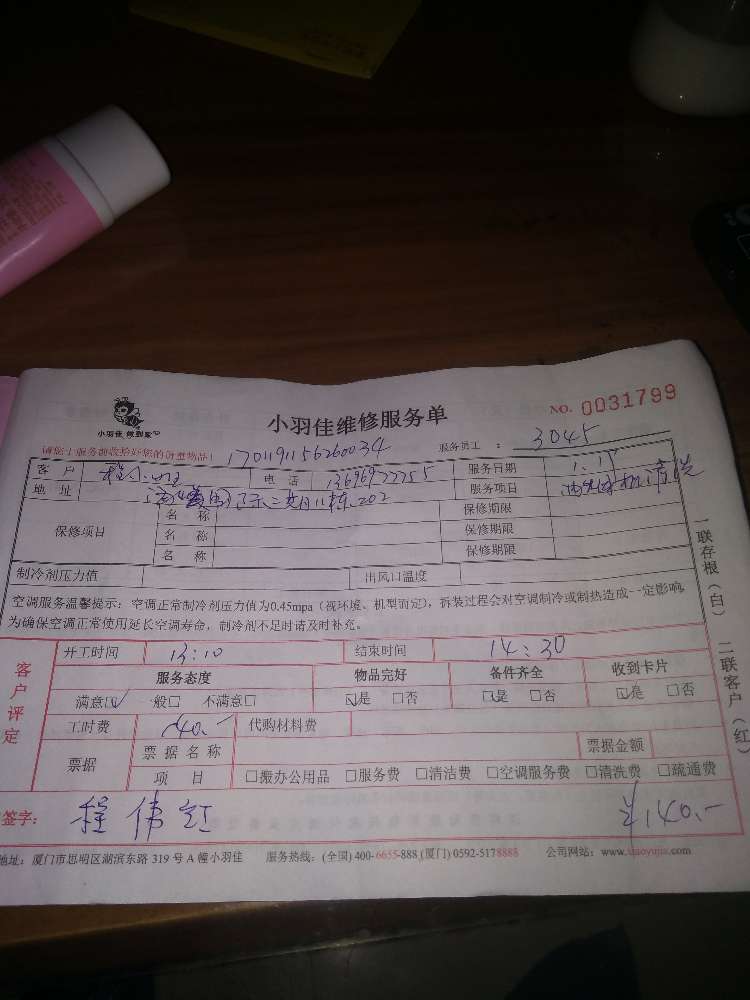 小羽佳 做到家
小羽佳维修服务单
NO. 0031799
请您于服务前收拾好您的贵重物品! 17011911156260034
服务员工 : 3045
客户 电话 13696977755 服务日期 1.1
地址 202 服务项目 油烟机清洗
保修项目 名称 保修期限
名称 保修期限
名称 保修期限
制冷剂压力值 出风口温度
空调服务温馨提示:空调正常制冷剂压力值为0.45mpa(视环境、机型而定),拆装过程会对空调制冷或制热造成一定影响,
为确保空调正常使用延长空调寿命,制冷剂不足时请及时补充。
客户评定
开工时间 13:10 结束时间 14:30
服务态度 物品完好 备件齐全 收到卡片
满意☑ 一般□ 不满意□ ☑是 □否 ☑是 □否 ☑是 □否
工时费 140.- 代购材料费
票据 票据名称 票据金额
项目 □搬办公用品 □服务费 □清洁费 □空调服务费 □清洗费 □疏通费
签字: 程伟红 ¥140.-
地址:厦门市思明区湖滨东路 319 号 A 幢小羽佳 服务热线:(全国) 400-6655-888 (厦门) 0592-5178888 公司网站:www.xiaoyujia.com
一联存根(白) 二联客户(红)